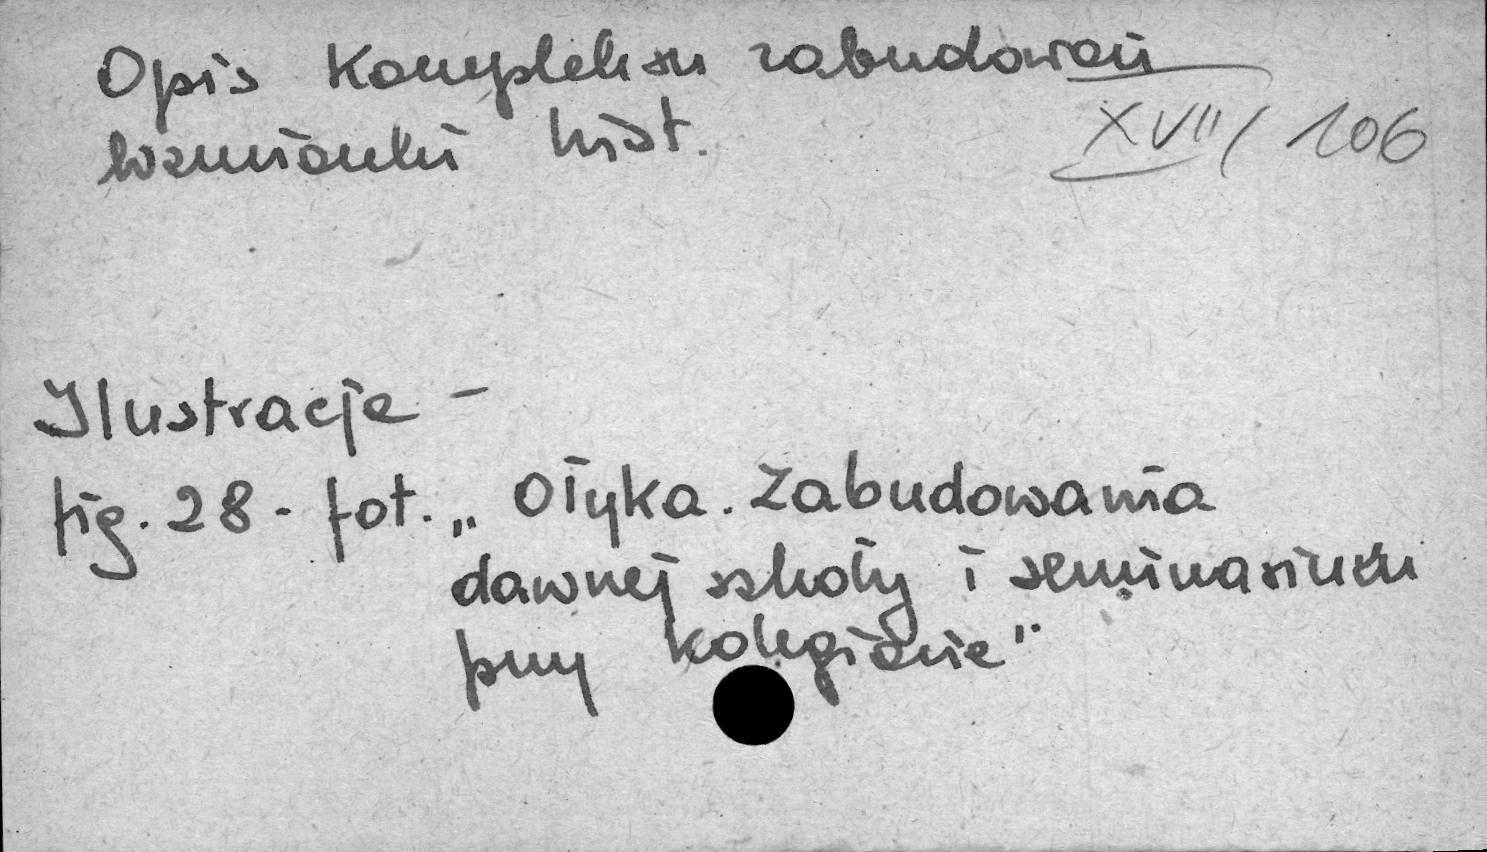 Opis kompleksu zabudowań
wzmianki hist.
XVII/106
Ilustracje –
fig. 28 - fot. „Ołyka. Zabudowania
dawnej szkoły i seminarium
przy kolegiacie"